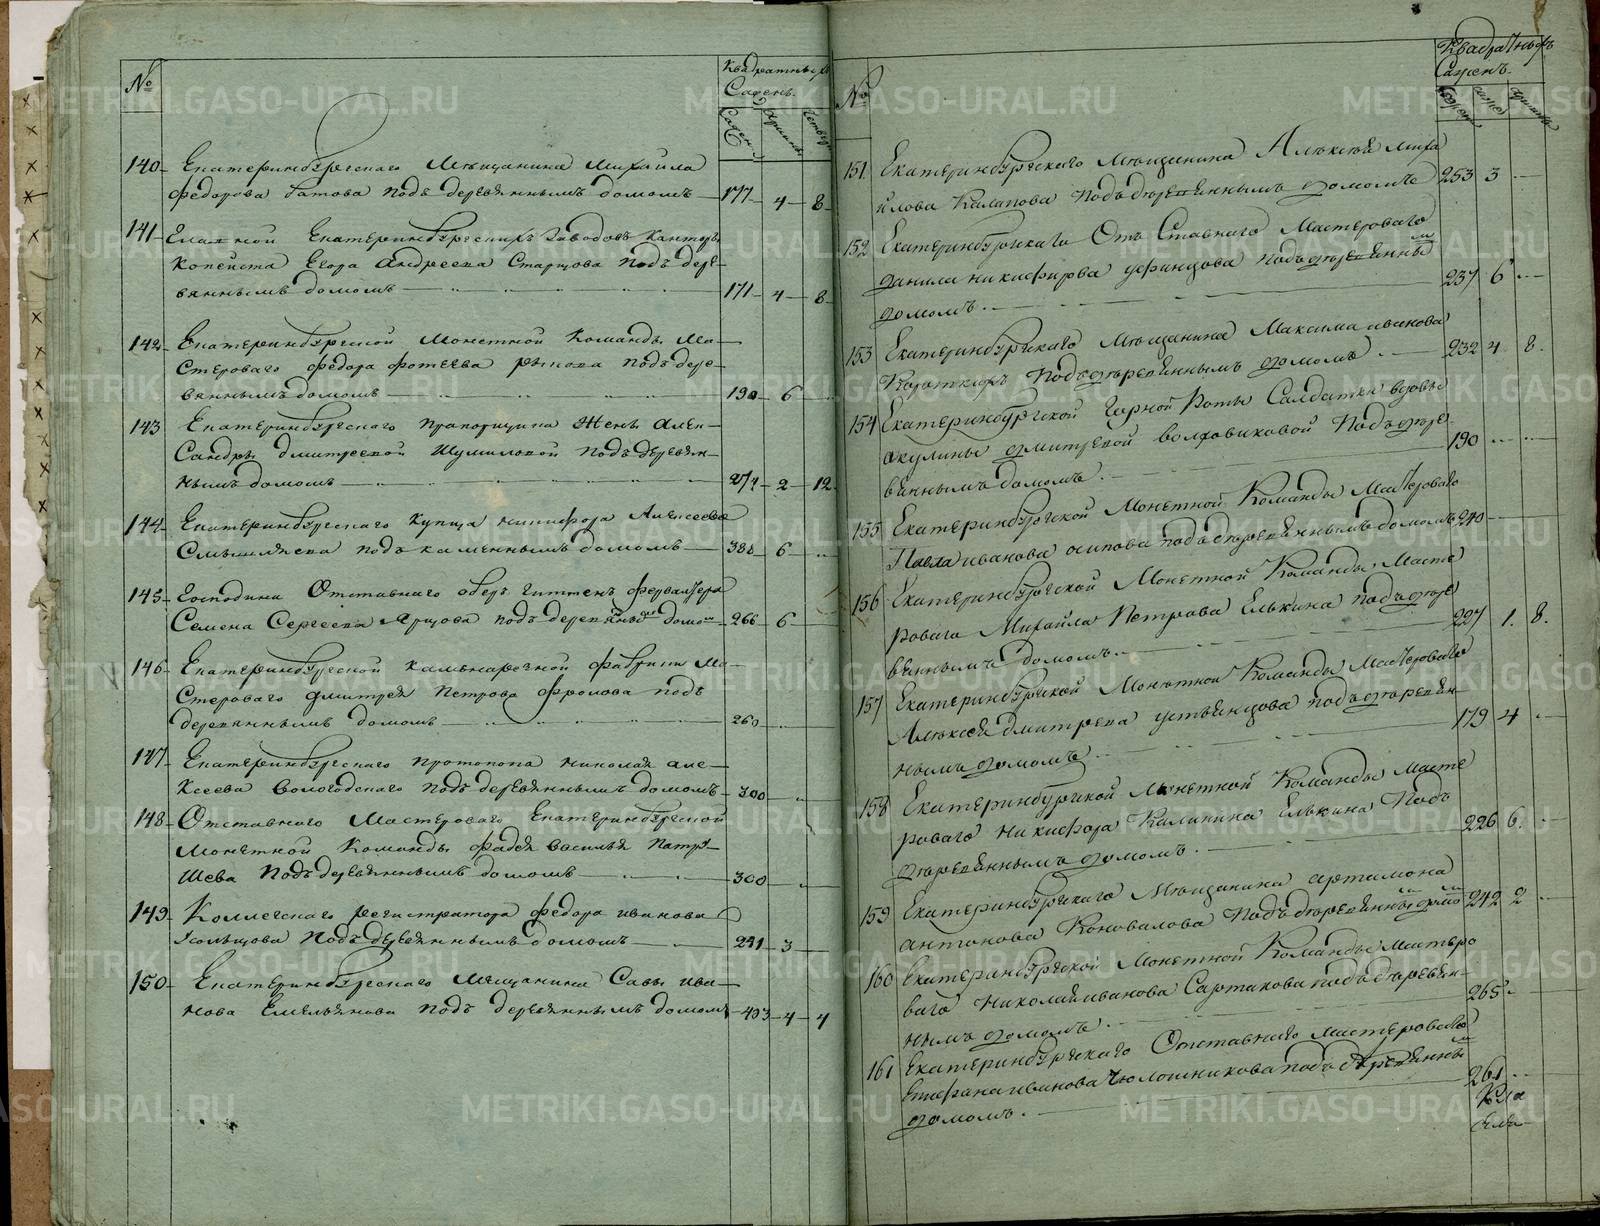 №
Квадратныхъ
Саженъ.
140 Екатеринбургскаго Мѣщанина Михайла
Федорова подъ деревяннымъ домомъ 177 4 8
141 Екатеринбургскихъ заводовъ Канторы
Копеиста Егора Андреева Старцова подъ дере-
вяннымъ домомъ 171 4 8
142 Екатеринбургской Монетной Команды Ма-
стероваго Федора Фотеева подъ дере-
вяннымъ домомъ 190 6
143 Екатеринбургскаго Прапорщика Жены Алек-
сандры Дмитреевой Шумиловой подъ деревян-
нымъ домомъ 2 12
144 Екатеринбургскаго Купца Никифора Алексеева
подъ каменнымъ домомъ 388 6
145 Господина Отставнаго Оберъ Гиттенъ Фервалтера
Семена Сергеева Ярцова подъ деревяннымъ домомъ 266 6
146 Екатеринбургской фабрики Ма-
стероваго Дмитрея Петрова Фролова подъ
деревяннымъ домомъ 260
147 Екатеринбургскаго Протопопа Николая Але-
ксеева Вологодскаго подъ деревяннымъ домомъ 300
148 Отставнаго Мастероваго Екатеринбургской
Монетной Команды Фадея Василья Патру-
шева Подъ деревяннымъ домомъ 300
149 Коллегскаго регистратора Федора Иванова
подъ деревяннымъ домомъ 291 3
150 Екатеринбургскаго Мещанина Савы Ива-
нова Емельянова подъ деревяннымъ домомъ 403 4 4
№
Квадратныхъ
Саженъ.
151 Екатеринбургскаго Мѣщанина Алексѣя Миха
йлова Калапова Подъ деревяннымъ домомъ 253 3
152 Екатеринбургскаго Отъ Ставнаго Мастероваго
Данила Никифорова Уфинцова подъ деревянны
домомъ. 237 6
153 Екатеринбургскаго Мѣщанина Максима Иванова
Короткихъ Подъ деревяннымъ домомъ. 232 4 8.
154 Екатеринбургской Горной Роты Салдатки вдовы
Акулины Дмитревой Волховиковой Подъ дере
вяннымъ домомъ. 190
155 Екатеринбургской Монетной Команды Мастероваго
Павла Иванова Осипова подъ деревяннымъ домомъ 240
156 Екатеринбургской Монетной Команды Масте
роваго Михайла Петрова Елькина подъ дере
вяннымъ домомъ. 227 1. 8.
157 Екатеринбургской Монетной Команды Мастероваго
Алексѣя Дмитрева Устьянцова подъ деревян
нымъ домомъ 179 4
158 Екатеринбургской Монетной Команды Масте
роваго Никифора Калинина Елькина Подъ
деревяннымъ домомъ. 226 6.
159 Екатеринбургскаго Мѣщанина Артамона
Антонова Коновалова Подъ деревяннымъ домо 242 2
160 Екатеринбургской Монетной Команды Мастеро
ваго Николая Иванова Сартакова подъ деревян
нымъ домомъ. 265
161 Екатеринбургскаго Отставнаго Мастероваго
Епифана Иванова Чюлошникова подъ деревянны
домомъ. 261
METRIKI.GASO-URAL.RU